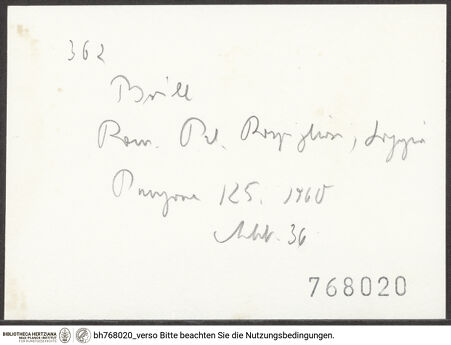 362
Brill
Rom. Pal. Rospigliosi, Loggia
125. 1960
Abb. 36
768020
BIBLIOTHECA HERTZIANA
MAX-PLANCK-INSTITUT
FÜR KUNSTGESCHICHTE
bh768020_verso Bitte beachten Sie die Nutzungsbedingungen.